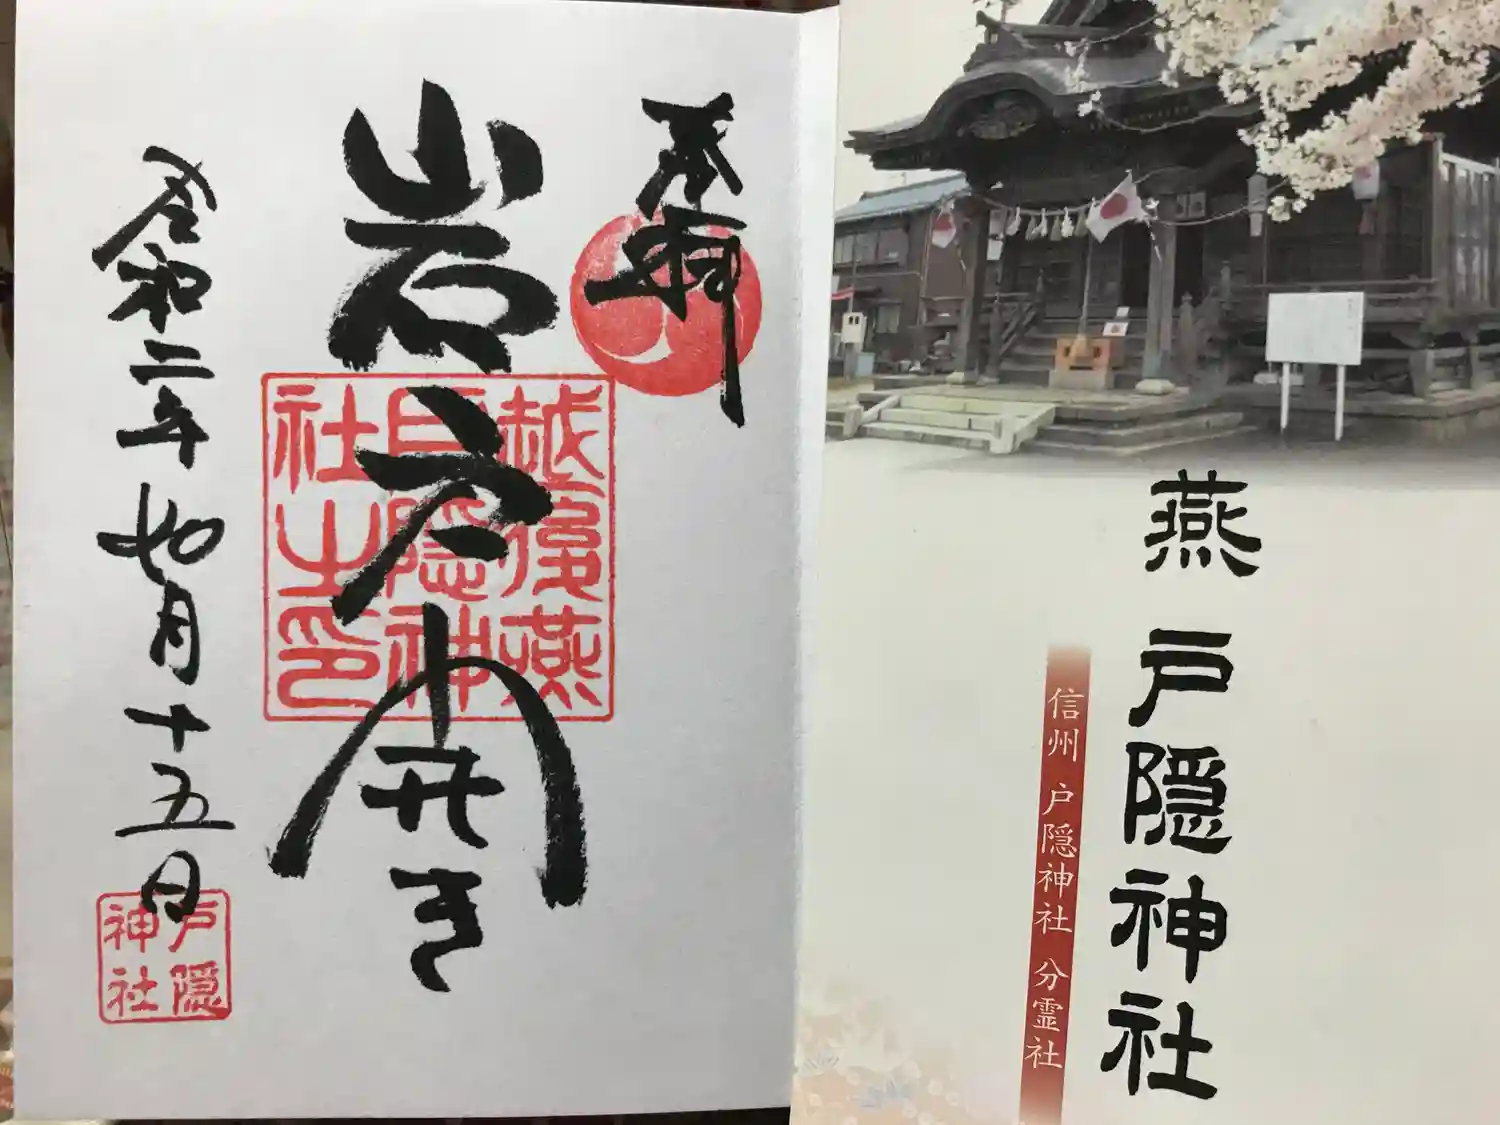 奉拝
岩戸開き
令和二年七月十五日
越後燕
戸隠神
社之印
戸隠
神社
燕 戸隠神社
信州 戸隠神社 分霊社